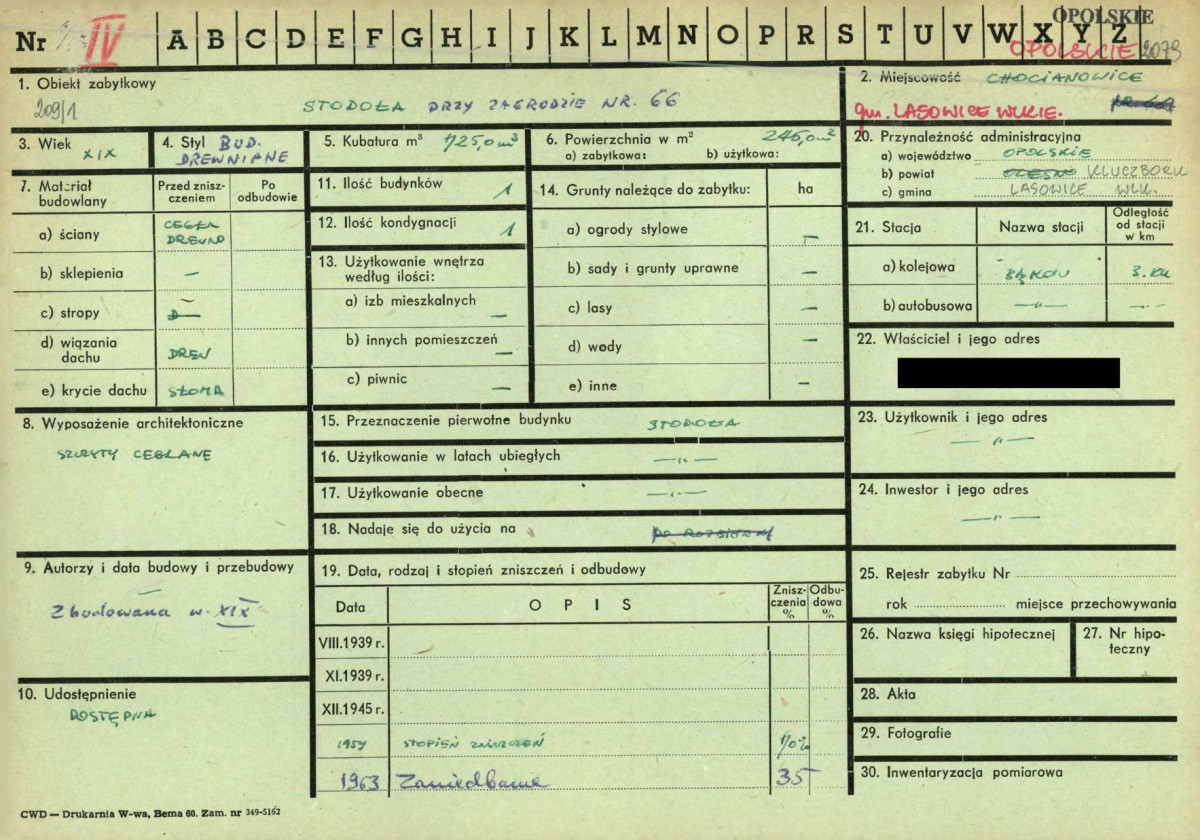 OPOLSKIE
Nr IV A B C D E F G H I J K L M N O P R S T U V W X Y Z
OPOLSKIE 2073
1. Obiekt zabytkowy
209/1
STODOŁA PRZY ZAGRODZIE NR. 66
2. Miejscowość CHOCIANOWICE
gm. LASOWICE WLKIE.
3. Wiek XIX
4. Styl BUD. DREWNIANE
5. Kubatura m³ 1725,0 m³
6. Powierzchnia w m² 246,0 m²
a) zabytkowa: b) użytkowa:
20. Przynależność administracyjna
a) województwo OPOLSKIE
b) powiat OLESNO KLUCZBORK
c) gmina LASOWICE WLK.
7. Materiał budowlany
Przed zniszczeniem
Po odbudowie
a) ściany CEGŁA DREWNO
b) sklepienia —
c) stropy D —
d) wiązania dachu DREW
e) krycie dachu SŁOMA
11. Ilość budynków 1
12. Ilość kondygnacji 1
13. Użytkowanie wnętrza według ilości:
a) izb mieszkalnych —
b) innych pomieszczeń —
c) piwnic —
14. Grunty należące do zabytku: ha
a) ogrody stylowe —
b) sady i grunty uprawne —
c) lasy —
d) wody —
e) inne —
21. Stacja
Nazwa stacji
Odległość od stacji w km
a) kolejowa BĄKÓW 3. KM
b) autobusowa —"— —"—
22. Właściciel i jego adres
8. Wyposażenie architektoniczne
SZCZYTY CEGLANE
15. Przeznaczenie pierwotne budynku STODOŁA
16. Użytkowanie w latach ubiegłych —"—
17. Użytkowanie obecne —"—
18. Nadaje się do użycia na DO ROZBIÓRKI
23. Użytkownik i jego adres
—"—
24. Inwestor i jego adres
—"—
9. Autorzy i data budowy i przebudowy
—
Zbudowana w. XIX
10. Udostępnienie
DOSTĘPNA
19. Data, rodzaj i stopień zniszczeń i odbudowy
Data
OPIS
Zniszczenia %
Odbudowa %
VIII.1939 r.
XI.1939 r.
XII.1945 r.
1959 STOPIEŃ ZNISZCZEŃ 70%
1963 Zaniedbane 35
25. Rejestr zabytku Nr
rok miejsce przechowywania
26. Nazwa księgi hipotecznej
27. Nr hipoteczny
28. Akta
29. Fotografie
30. Inwentaryzacja pomiarowa
CWD — Drukarnia W-wa, Bema 60. Zam. nr 349-5162